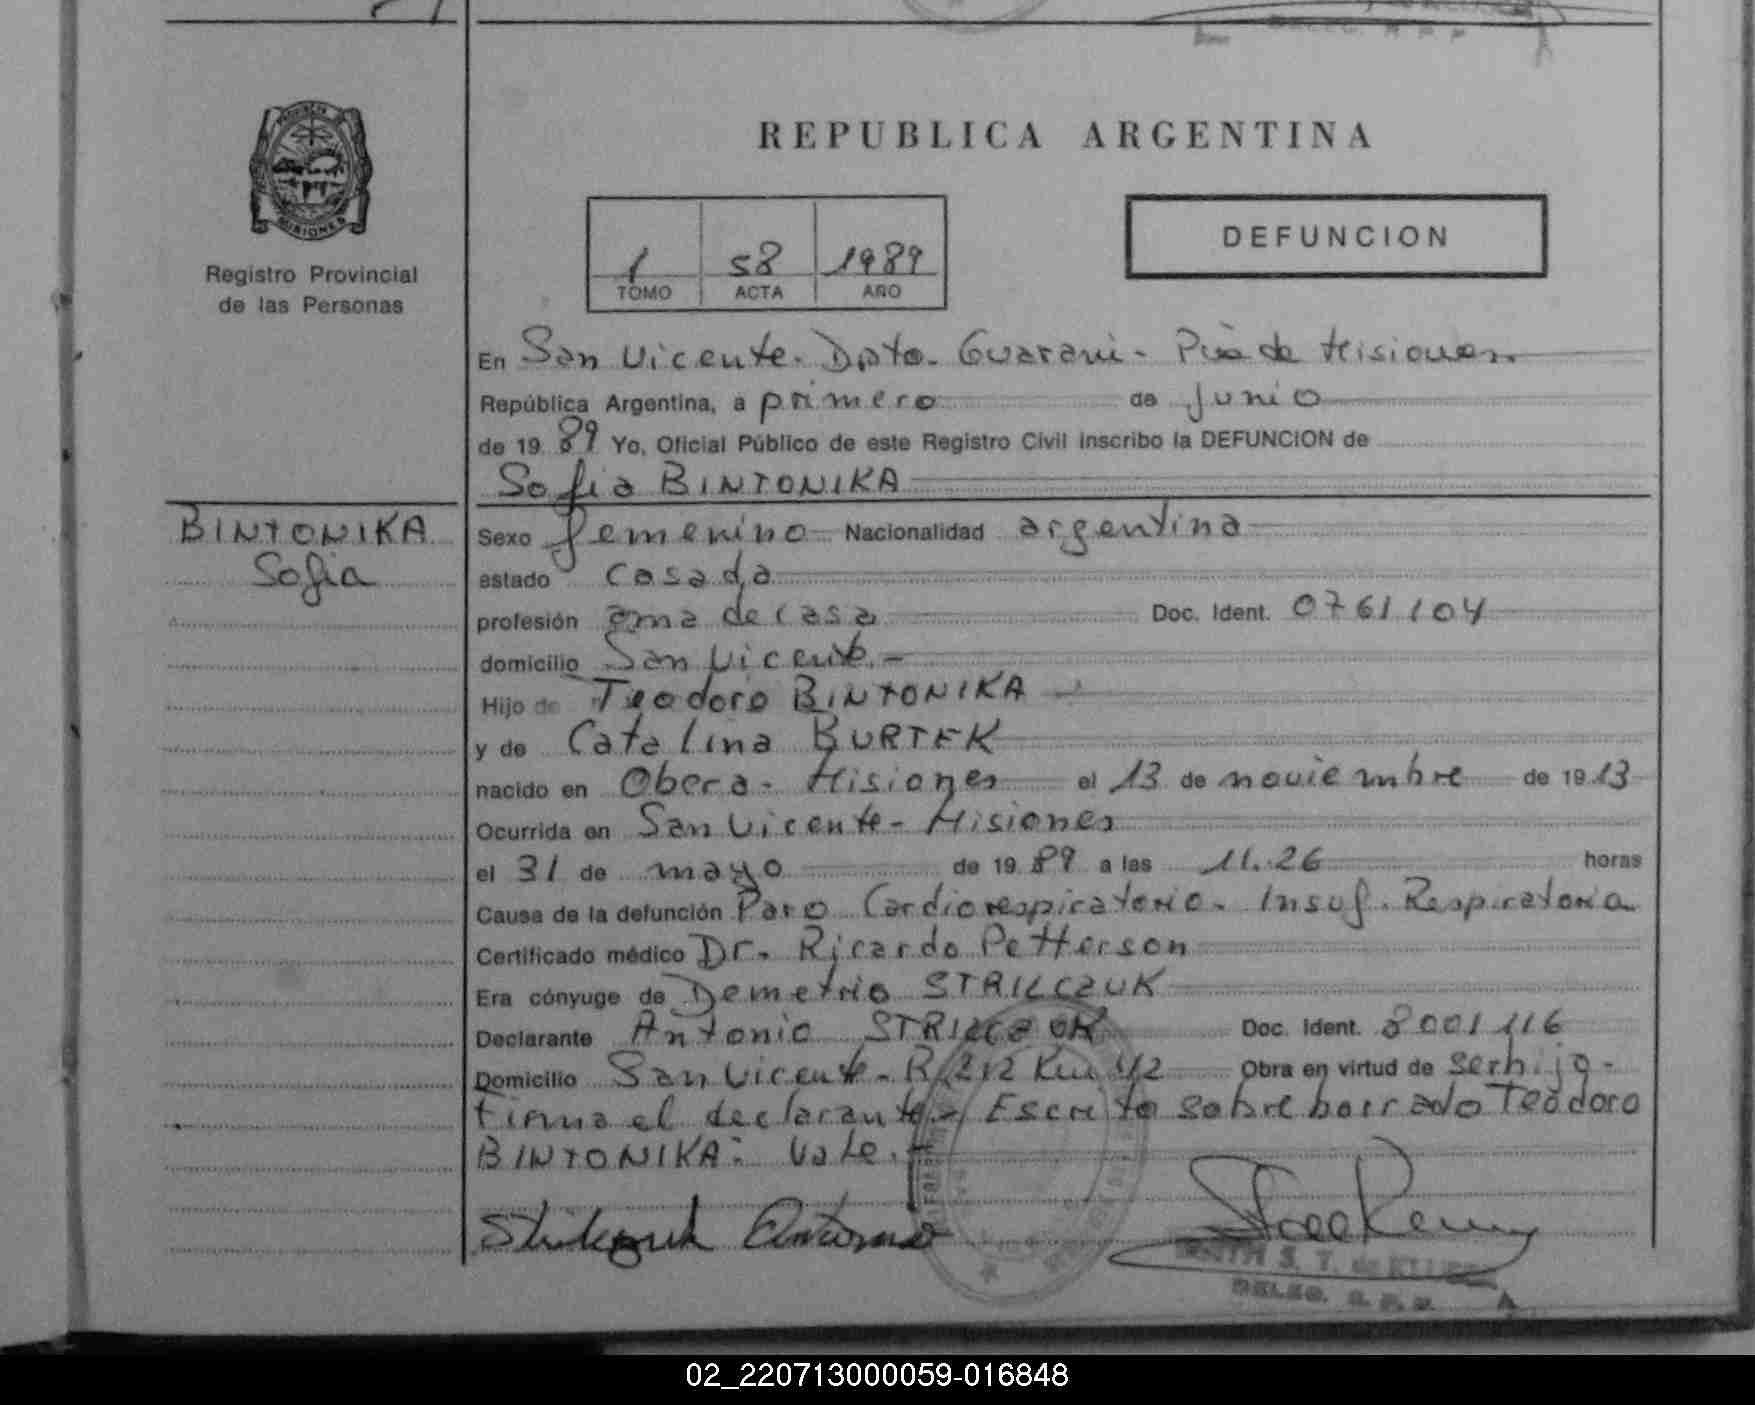 PROVINCIA DE
MISIONES
Registro Provincial
de las Personas
REPUBLICA ARGENTINA
1 58 1989
TOMO ACTA AÑO
DEFUNCION
En San Vicente. Dpto. Guarani - Pcia de Misiones.
República Argentina, a primero de junio
de 19 89 Yo, Oficial Público de este Registro Civil inscribo la DEFUNCION de
Sofia BINTONIKA
BINTONIKA
Sofia
Sexo femenino Nacionalidad argentina
estado casada
profesión ama de casa Doc. Ident. 0761104
domicilio San Vicente.-
Hijo de Teodoro BINTONIKA
y de Catalina BURTEK
nacido en Obera - Misiones el 13 de noviembre de 19 13
Ocurrida en San Vicente - Misiones
el 31 de mayo de 19 89 a las 11.26 horas
Causa de la defunción Paro Cardiorespiratorio. Insuf. Respiratoria
Certificado médico Dr. Ricardo Petterson
Era cónyuge de Demetrio STRILCZUK
Declarante Antonio STRILCZUK Doc. Ident. 8001116
Domicilio San Vicente - R/212 Km 1/2 Obra en virtud de ser hijo -
Firma el declarante - Escrito sobre borrado Teodoro
BINTONIKA: Vale.
Antonio
DELEG. R. P. P.
02_220713000059-016848